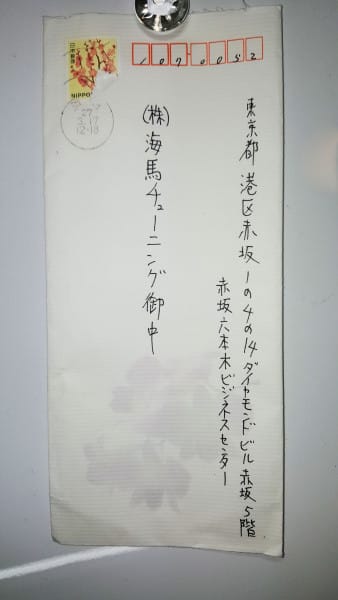 日本郵便
NIPPON
27
3.17
12-18
1070052
東京都港区赤坂1の4の14ダイヤモンドビル赤坂5階
赤坂六本木ビジネスセンター
(株)海馬チューニング御中